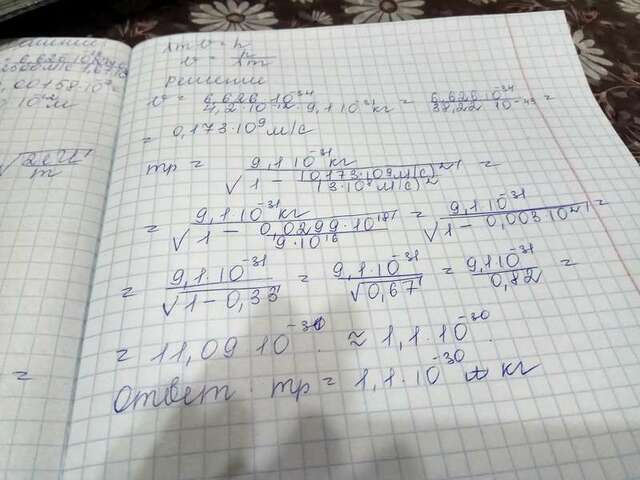 λmv = h
v = h/λm
решение
v = 6,626·10^-34 / 4,2·10^-12·9,1·10^-31 кг = 6,626·10^-34 / 38,22·10^-43 =
= 0,173·10^9 м/с
mр = 9,1·10^-31 кг / √(1 - (0,173·10^9 м/с)^2 / (3·10^8 м/с)^2) =
= 9,1·10^-31 кг / √(1 - 0,0299·10^18 / 9·10^16) = 9,1·10^-31 / √(1 - 0,003·10^2) =
= 9,1·10^-31 / √(1 - 0,33) = 9,1·10^-31 / √0,67 = 9,1·10^-31 / 0,82 =
= 11,09·10^-31 ≈ 1,1·10^-30.
Ответ. mр = 1,1·10^-30 кг
√(2eU/m)
=